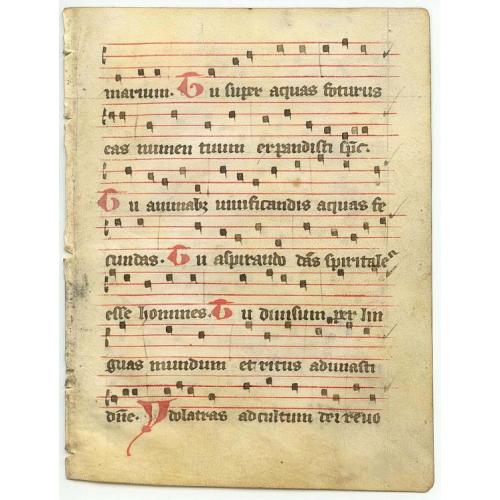 marium. Tu super aquas foturus
eas numen tuum expandisti sp̄c.
Tu aīmabꝫ viuificandis aquas fe
cundas. Tu aspirando dās spiritale
esse homines. Tu diuisum per lin
guas mundum et ritus adunasti
dn̄e. Ydolatras ad cultum dei reuo